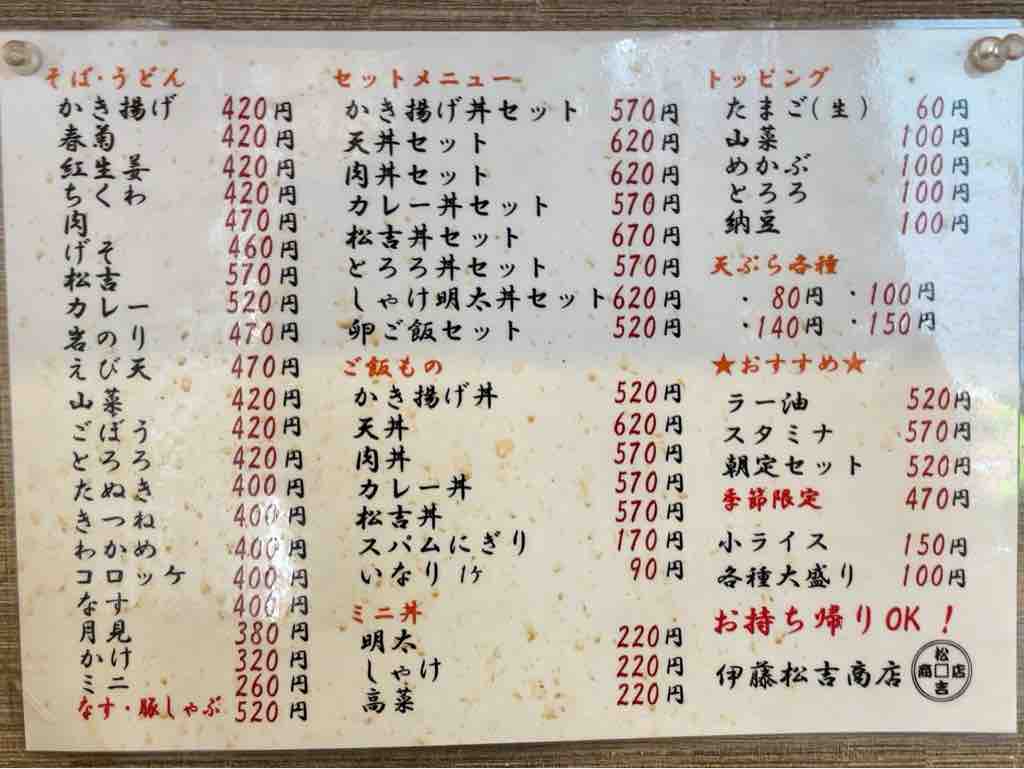 そば・うどん
かき揚げ 420円
春菊 420円
紅生姜 420円
ちくわ 420円
肉 470円
げそ 460円
松吉 570円
カレー 520円
岩のり 470円
えび天 470円
山菜 420円
ごぼう 420円
とろろ 420円
たぬき 400円
きつね 400円
わかめ 400円
コロッケ 400円
なす 400円
月見 380円
かけ 320円
ミニ 260円
なす・豚しゃぶ 520円
セットメニュー
かき揚げ丼セット 570円
天丼セット 620円
肉丼セット 620円
カレー丼セット 570円
松吉丼セット 670円
とろろ丼セット 570円
しゃけ明太丼セット 620円
卵ご飯セット 520円
ご飯もの
かき揚げ丼 520円
天丼 620円
肉丼 570円
カレー丼 570円
松吉丼 570円
スパムにぎり 170円
いなり 1ケ 90円
ミニ丼
明太 220円
しゃけ 220円
高菜 220円
トッピング
たまご(生) 60円
山菜 100円
めかぶ 100円
とろろ 100円
納豆 100円
天ぷら各種
・80円 ・100円
・140円 ・150円
★おすすめ★
ラー油 520円
スタミナ 570円
朝定セット 520円
季節限定 470円
小ライス 150円
各種大盛り 100円
お持ち帰りOK!
伊藤松吉商店
松
商□店
吉